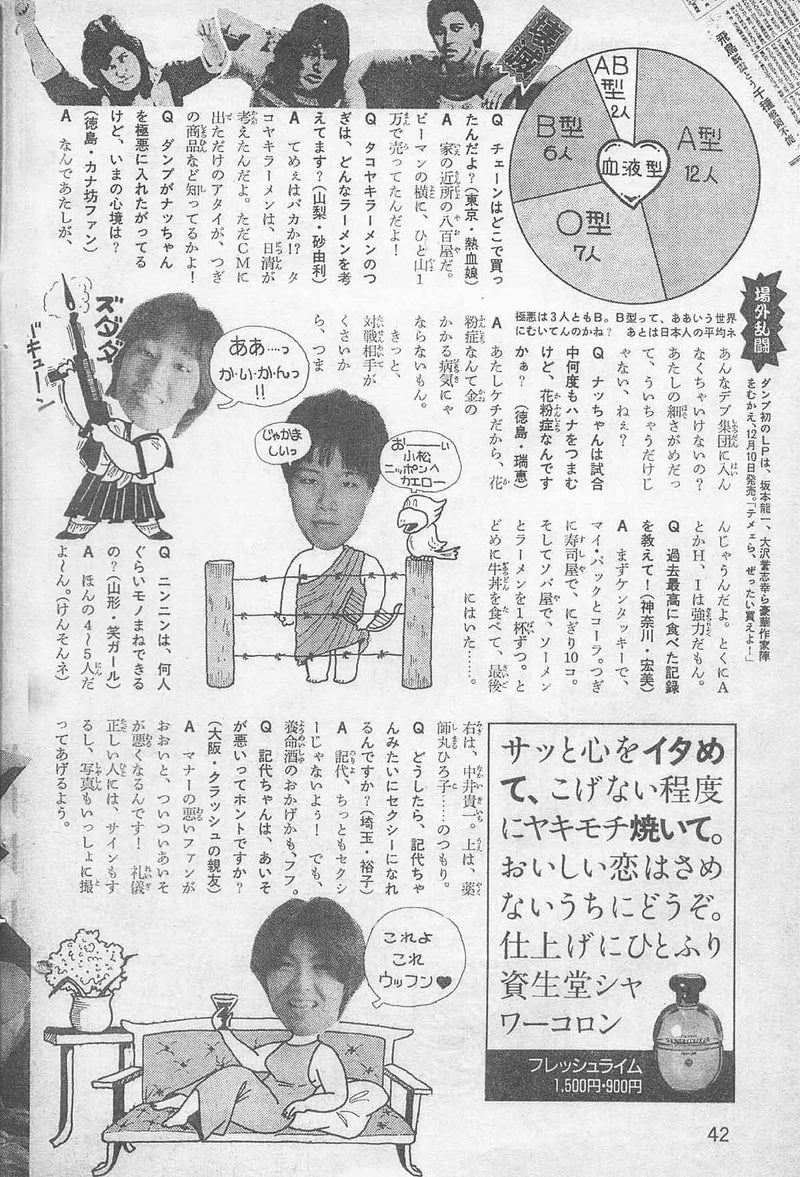 撲滅
AB型
2人
B型
6人
A型
12人
O型
7人
血液型
極悪は3人ともB。B型って、ああいう世界
にむいてんのかね? あとは日本人の平均ネ
Q チェーンはどこで買っ
たんだよ?(東京・熱血娘)
A 家の近所の八百屋だ。
ピーマンの横に、ひと山1
万で売ってたんだよ!
Q タコヤキラーメンのつ
ぎは、どんなラーメンを考
えてます?(山梨・砂由利)
A てめぇはバカか!? タ
コヤキラーメンは、日清が
考えたんだよ。ただCMに
出ただけのアタイが、つぎ
の商品など知ってるかよ!
Q ダンプがナッちゃん
を極悪に入れたがってる
けど、いまの心境は?
(徳島・カナ坊ファン)
A なんであたしが、
場外乱闘
ダンプ初のLPは、坂本龍一、大沢誉志幸ら豪華作家陣
をむかえ、12月10日発売。「テメェら、ぜったい買えよー」
あんなデブ集団に入ん
なくちゃいけないの?
あたしの細さがめだっ
て、ういちゃうだけじ
ゃない、ねぇ?
Q ナッちゃんは試合
中何度もハナをつまむ
けど、花粉症なんです
かぁ? (徳島・瑞恵)
A あたしケチだから、花
粉症なんて金の
かかる病気にゃ
ならないもん。
きっと、
対戦相手が
くさいか
ら、つま
んじゃうんだよ。とくにA
とかH、Iは強力だもん。
Q 過去最高に食べた記録
を教えて!(神奈川・宏美)
A まずケンタッキーで、
マイ・パックとコーラ。つぎ
に寿司屋で、にぎり10コ。
そしてソバ屋で、ソーメン
とラーメンを1杯ずつ。と
どめに牛丼を食べて、最後
にはいた……。
Q ニンニンは、何人
ぐらいモノまねできる
の?(山形・笑ガール)
A ほんの4~5人だ
よ~ん。(けんそんネ)
ズダダ
ドキューン
ああ…っ
か・い・か・んっ
!!
じゃかま
しいっ
おーーーい
小松
ニッポンへ
カエロー
右は、中井貴一。上は、薬
師丸ひろ子……のつもり。
Q どうしたら、記代ちゃ
んみたいにセクシーになれ
るんですか?(埼玉・裕子)
A 記代、ちっともセクシ
ーじゃないよぅ! でも、
養命酒のおかげかも、フフ。
Q 記代ちゃんは、あいそ
が悪いってホントですか?
(大阪・クラッシュの親友)
A マナーの悪いファンが
おおいと、ついついあいそ
が悪くなるんです! 礼儀
正しい人には、サインもす
るし、写真もいっしょに撮
ってあげるよう。
これよ
これ
ウッフン♥
サッと心をイタめ
て、こげない程度
にヤキモチ焼いて。
おいしい恋はさめ
ないうちにどうぞ。
仕上げにひとふり
資生堂シャ
ワーコロン
フレッシュライム
1,500円・900円
42